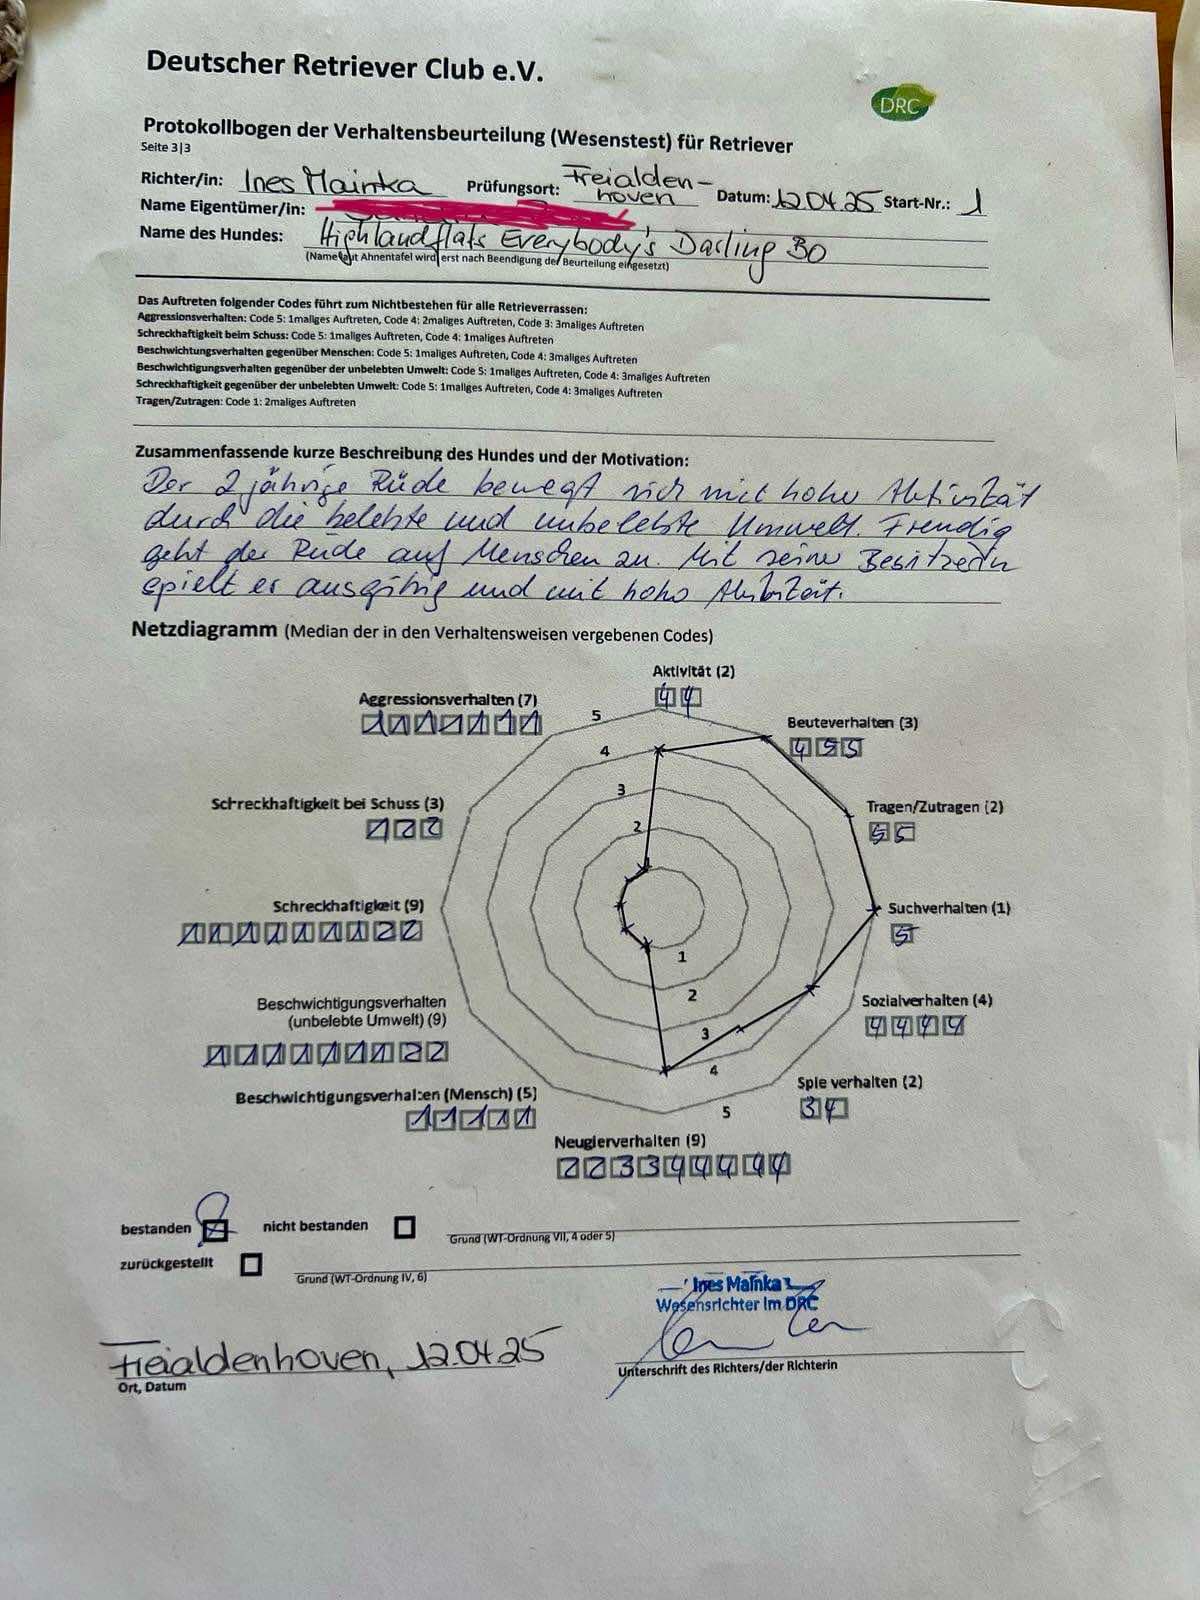 Deutscher Retriever Club e.V.
DRC
Protokollbogen der Verhaltensbeurteilung (Wesenstest) für Retriever
Seite 3|3
Richter/in: Ines Mainka Prüfungsort: Freialden-hoven Datum: 12.04.25 Start-Nr.: 1
Name Eigentümer/in:
Name des Hundes: Highlandflats Everybody's Darling BO
(Name laut Ahnentafel wird erst nach Beendigung der Beurteilung eingesetzt)
Das Auftreten folgender Codes führt zum Nichtbestehen für alle Retrieverrassen:
Aggressionsverhalten: Code 5: 1maliges Auftreten, Code 4: 2maliges Auftreten, Code 3: 3maliges Auftreten
Schreckhaftigkeit beim Schuss: Code 5: 1maliges Auftreten, Code 4: 1maliges Auftreten
Beschwichtungsverhalten gegenüber Menschen: Code 5: 1maliges Auftreten, Code 4: 3maliges Auftreten
Beschwichtigungsverhalten gegenüber der unbelebten Umwelt: Code 5: 1maliges Auftreten, Code 4: 3maliges Auftreten
Schreckhaftigkeit gegenüber der unbelebten Umwelt: Code 5: 1maliges Auftreten, Code 4: 3maliges Auftreten
Tragen/Zutragen: Code 1: 2maliges Auftreten
Zusammenfassende kurze Beschreibung des Hundes und der Motivation:
Der 2 jährige Rüde bewegt sich mit hoher Aktivität
durch die belebte und unbelebte Umwelt. Freudig
geht der Rüde auf Menschen zu. Mit seiner Besitzerin
spielt er ausgiebig und mit hoher Aktivität.
Netzdiagramm (Median der in den Verhaltensweisen vergebenen Codes)
Aktivität (2)
4 4
Aggressionsverhalten (7)
1 1 1 1 1 1 1
Beuteverhalten (3)
4 5 5
Schreckhaftigkeit bei Schuss (3)
1 2 2
Tragen/Zutragen (2)
5 5
Schreckhaftigkeit (9)
1 1 1 1 1 1 1 2 2
Suchverhalten (1)
5
Beschwichtigungsverhalten
(unbelebte Umwelt) (9)
1 1 1 1 1 1 1 2 2
Sozialverhalten (4)
4 4 4 4
Beschwichtigungsverhalten (Mensch) (5)
1 1 1 1 1
Spie verhalten (2)
3 4
Neugierverhalten (9)
2 2 3 3 4 4 4 4 4
5
4
3
2
1
1
2
3
4
5
bestanden nicht bestanden
Grund (WT-Ordnung VII, 4 oder 5)
zurückgestellt
Grund (WT-Ordnung IV, 6)
Ines Mainka
Wesensrichter im DRC
Freialdenhoven, 12.04.25
Ort, Datum
Unterschrift des Richters/der Richterin